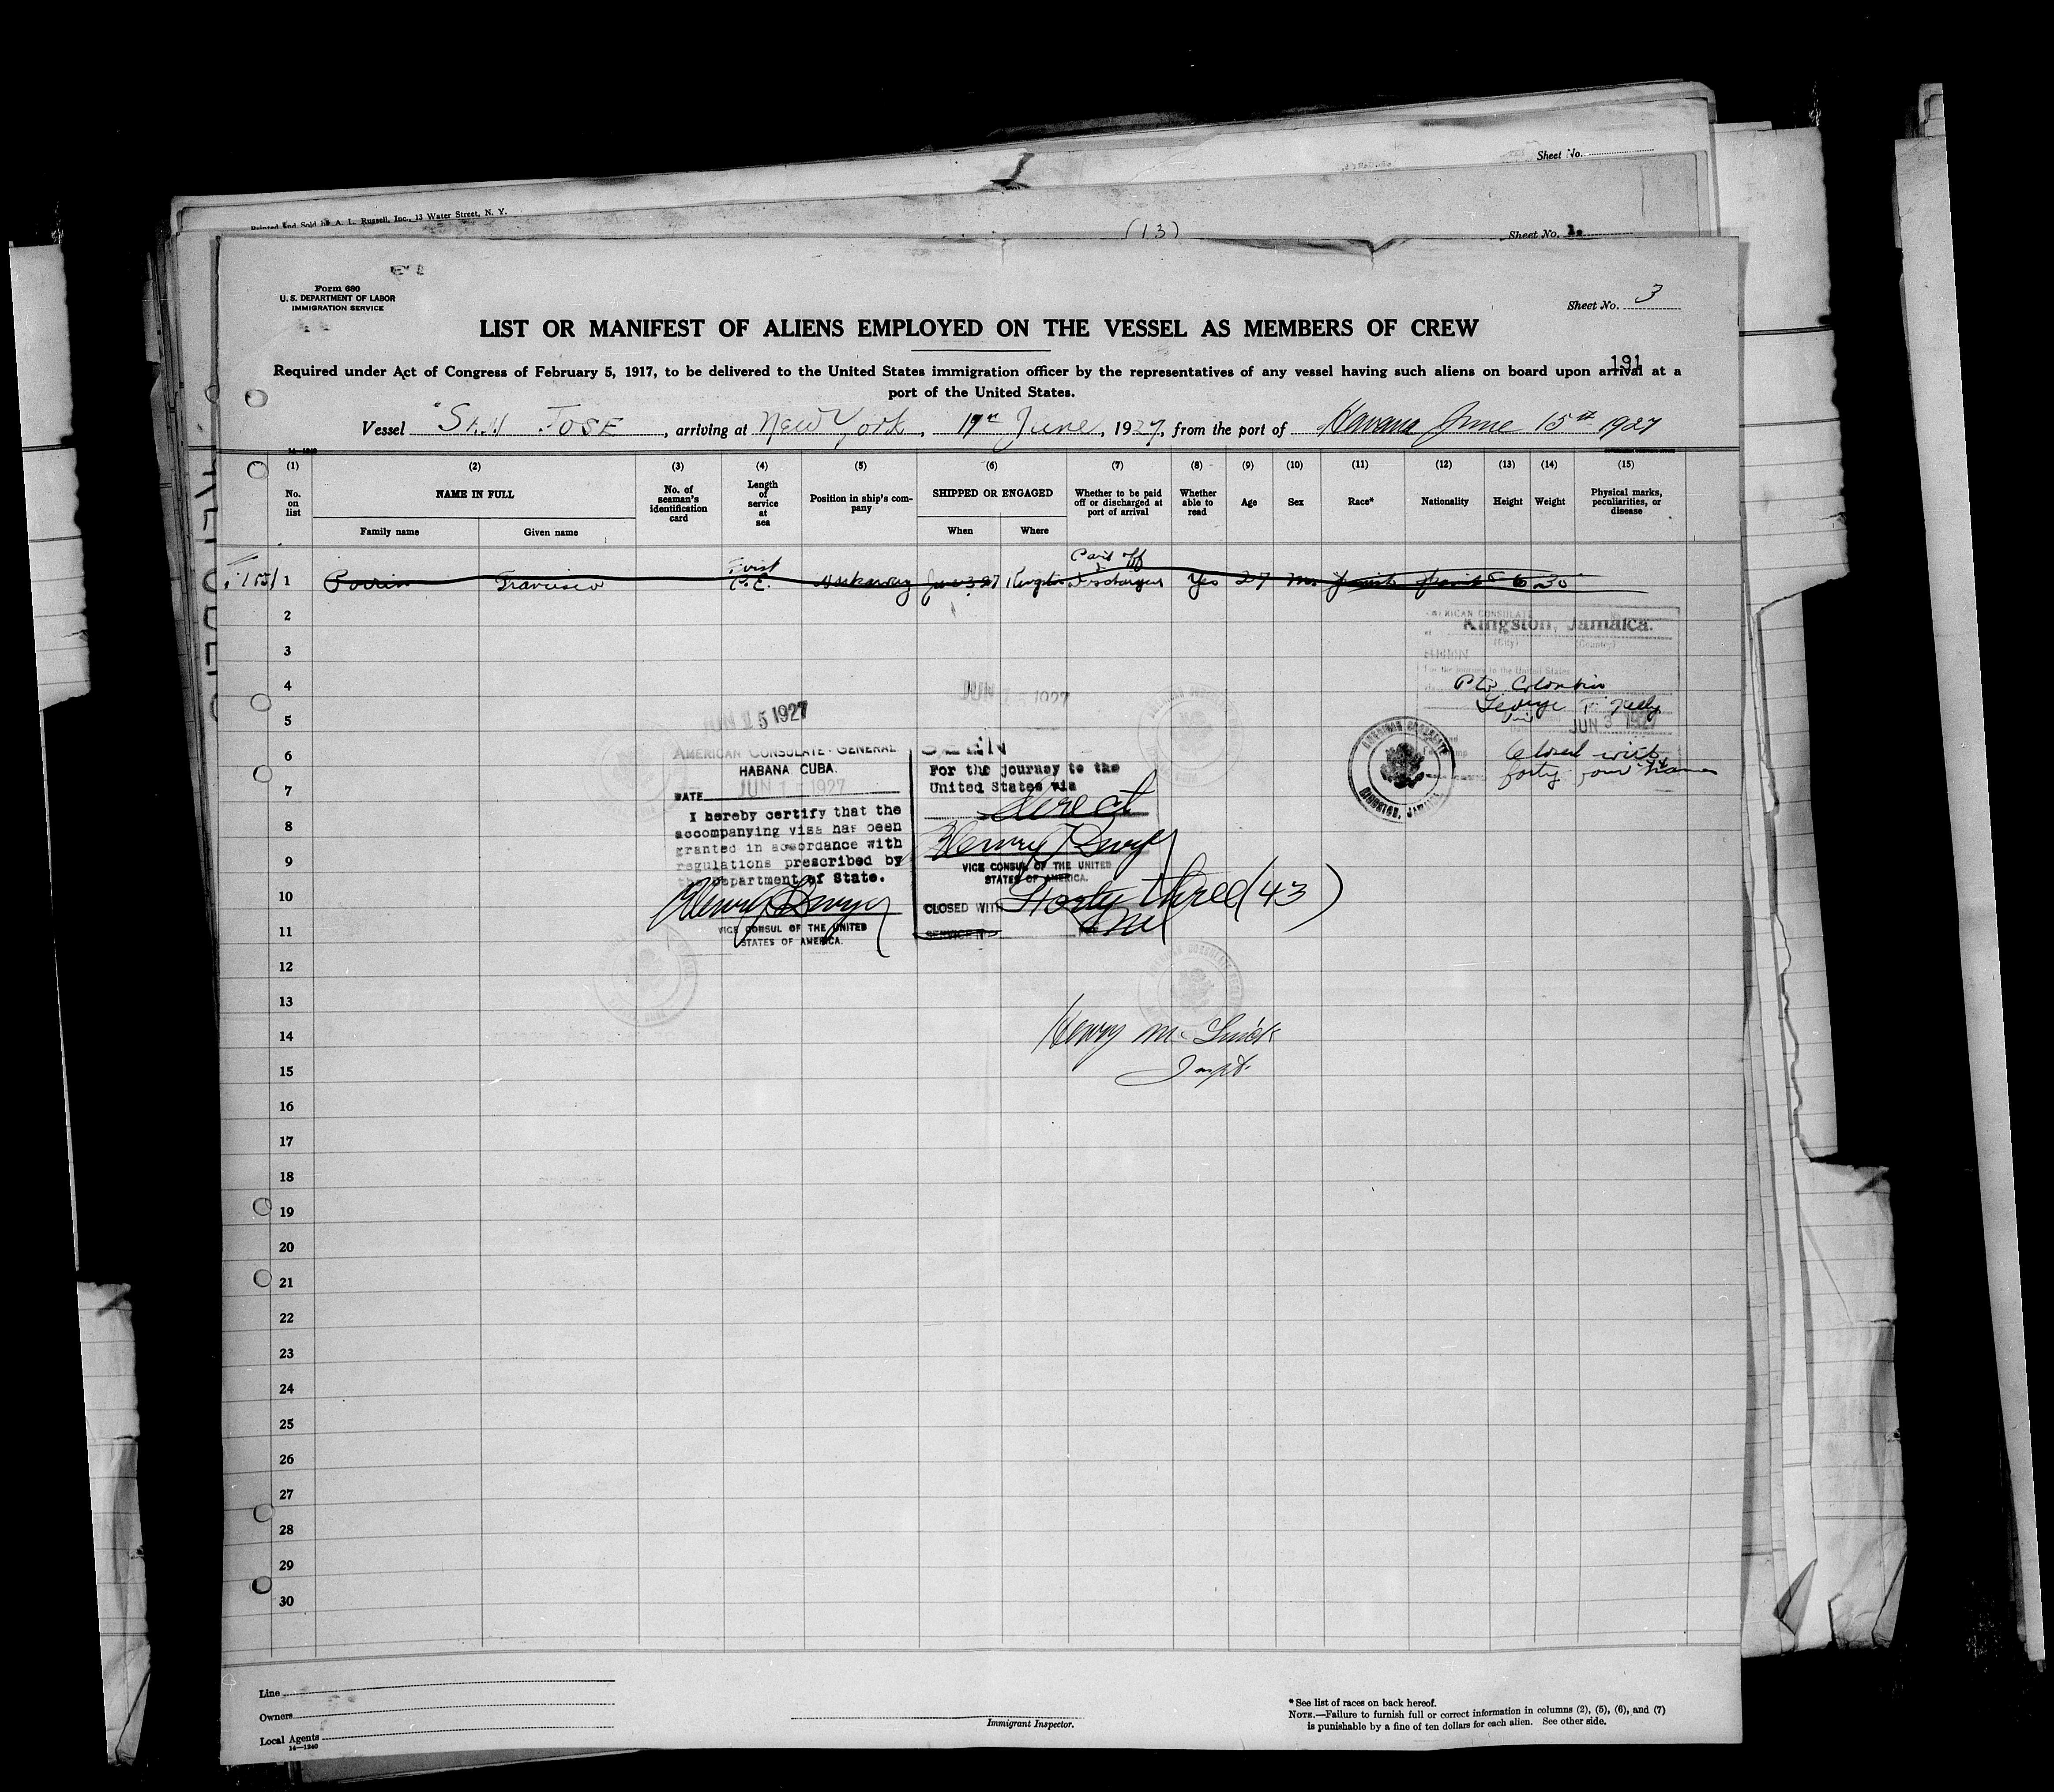 Sheet No.
Printed and Sold by A. L. Russell, Inc., 13 Water Street, N. Y.
(13)
Sheet No.
Form 680
U. S. DEPARTMENT OF LABOR
IMMIGRATION SERVICE
Sheet No. 3
LIST OR MANIFEST OF ALIENS EMPLOYED ON THE VESSEL AS MEMBERS OF CREW
191
Required under Act of Congress of February 5, 1917, to be delivered to the United States immigration officer by the representatives of any vessel having such aliens on board upon arrival at a
port of the United States.
Vessel San Jose, arriving at New York, 19th June, 1927, from the port of Havana June 15th 1927
14—1240
(1) (2) (3) (4) (5) (6) (7) (8) (9) (10) (11) (12) (13) (14) (15)
No. on list
NAME IN FULL
Family name
Given name
No. of seaman's identification card
Length of service at sea
Position in ship's company
SHIPPED OR ENGAGED
When
Where
Whether to be paid off or discharged at port of arrival
Whether able to read
Age
Sex
Race*
Nationality
Height
Weight
Physical marks, peculiarities, or disease
First
Paid off
1 Francisco Yes 27
2
3
4
5
6
7
8
9
10
11
12
13
14
15
16
17
18
19
20
21
22
23
24
25
26
27
28
29
30
AMERICAN CONSULATE
Kingston, Jamaica.
(City) (Country)
For the journey to the United States
Pto Colombia
JUN 3 1927
Closed with
forty four names
AMERICAN CONSULATE
KINGSTON, JAMAICA
JUN 15 1927
JUN 15 1927
AMERICAN CONSULATE-GENERAL
HABANA CUBA.
DATE JUN 1 1927
I hereby certify that the
accompanying visa has been
granted in accordance with
regulations prescribed by
the Department of State.
Henry Dwyer
VICE CONSUL OF THE UNITED
STATES OF AMERICA.
SEEN
For the journey to the
United States via
direct
Henry Dwyer
VICE CONSUL OF THE UNITED
STATES OF AMERICA.
CLOSED WITH Forty three (43)
SERVICE No.
Henry
Line
Owners
Local Agents
14—1240
Immigrant Inspector.
* See list of races on back hereof.
NOTE.—Failure to furnish full or correct information in columns (2), (5), (6), and (7)
is punishable by a fine of ten dollars for each alien. See other side.